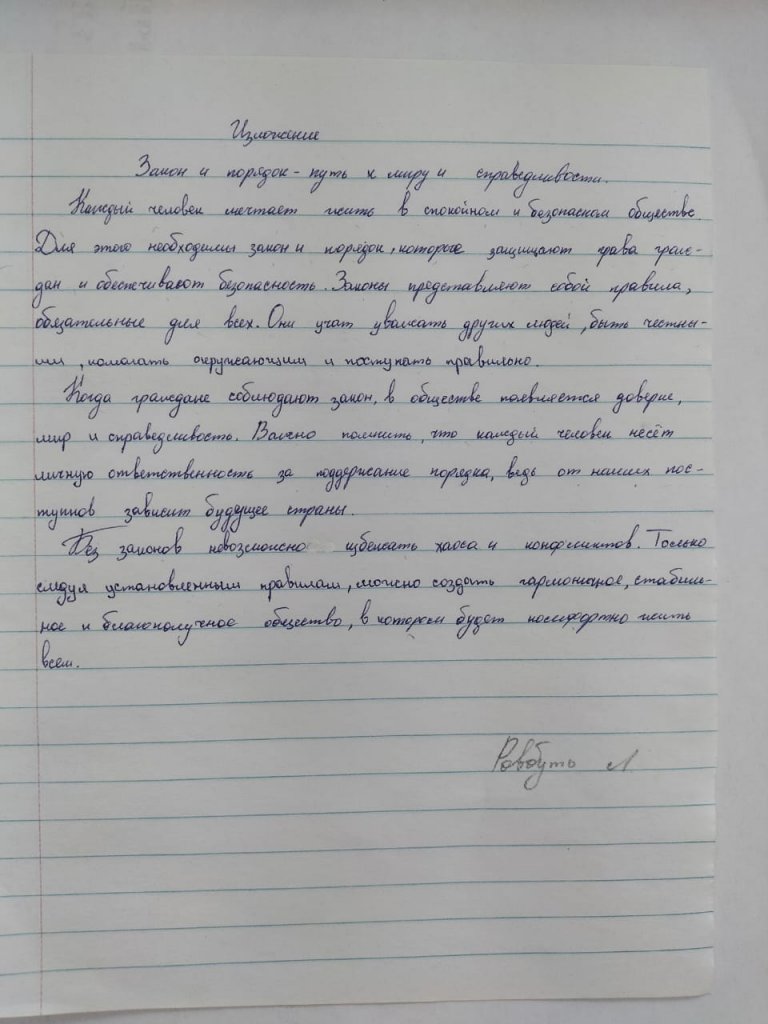 Изложение
Закон и порядок - путь к миру и справедливости.
Каждый человек мечтает жить в спокойном и безопасном обществе.
Для этого необходимы закон и порядок, которые защищают права граж-
дан и обеспечивают безопасность. Законы представляют собой правила,
обязательные для всех. Они учат уважать других людей, быть честны-
ми, помогать окружающим и поступать правильно.
Когда граждане соблюдают закон, в обществе появляется доверие,
мир и справедливость. Важно помнить, что каждый человек несёт
личную ответственность за поддержание порядка, ведь от наших пос-
тупков зависит будущее страны.
Без законов невозможно избежать хаоса и конфликтов. Только
следуя установленным правилам, можно создать гармоничное, стабиль-
ное и благополучное общество, в котором будет комфортно жить
всем.